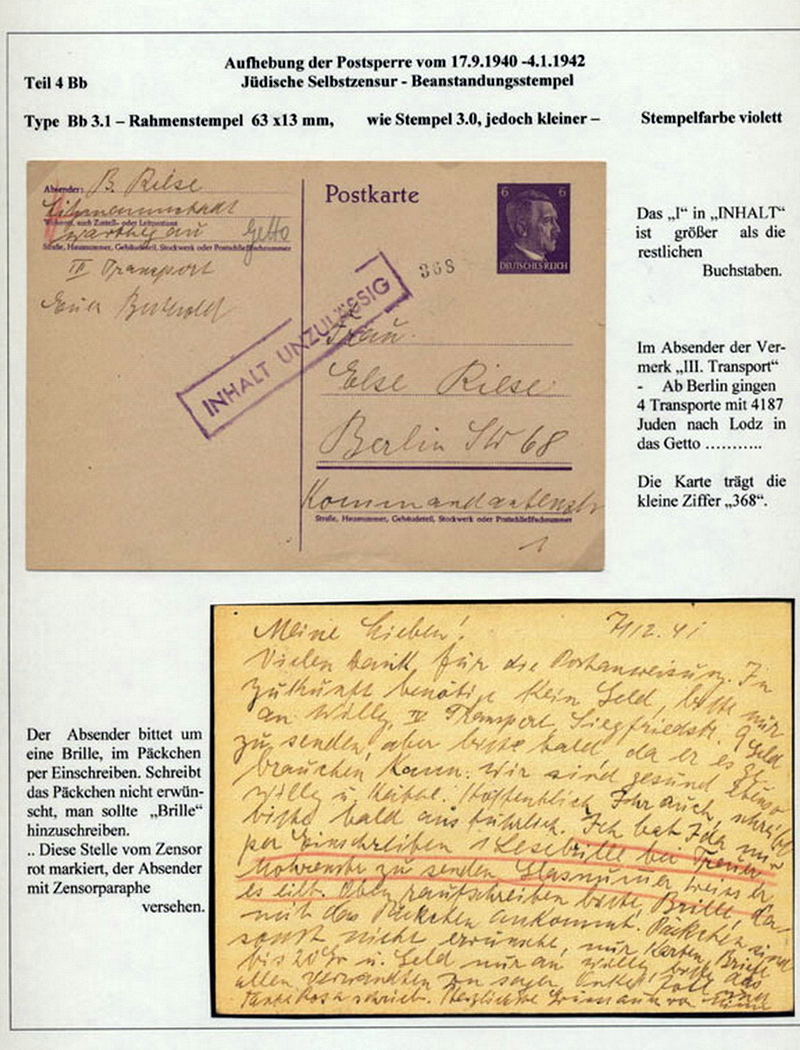 Aufhebung der Postsperre vom 17.9.1940 -4.1.1942
Teil 4 Bb
Jüdische Selbstzensur - Beanstandungsstempel
Type Bb 3.1 – Rahmenstempel 63 x13 mm, wie Stempel 3.0, jedoch kleiner – Stempelfarbe violett
Absender: B. Riese
Litzmannstadt
Wohnort, auch Zustell- oder Leitpostamt
Warthegau Getto
Straße, Hausnummer, Gebäudeteil, Stockwerk oder Postschließfachnummer
III Transport
Postkarte
6 6
DEUTSCHES REICH
368
INHALT UNZULÄSSIG
Frau
Else Riese
Berlin SW 68
Kommandantenstr
Straße, Hausnummer, Gebäudeteil, Stockwerk oder Postschließfachnummer
Das „I“ in „INHALT“
ist größer als die
restlichen
Buchstaben.
Im Absender der Ver-
merk „III. Transport“
- Ab Berlin gingen
4 Transporte mit 4187
Juden nach Lodz in
das Getto ...........
Die Karte trägt die
kleine Ziffer „368“.
Der Absender bittet um
eine Brille, im Päckchen
per Einschreiben. Schreibt
das Päckchen nicht erwün-
scht, man sollte „Brille“
hinzuschreiben.
.. Diese Stelle vom Zensor
rot markiert, der Absender
mit Zensorparaphe
versehen.
Meine Lieben! 7/12. 41
Vielen Dank für die Postanweisung. In
Zukunft benötige kein Geld, bitte nur
an Willy, IV Transport Siegfriedstr. 9 Geld
zu senden, aber bitte bald da er es
brauchen kann. Wir sind gesund ebenso
Willy u. Hoffentlich Ihr auch, schreibt
bitte bald ausführlich. Ich bat
per Einschreiben 1 Lesebrille bei
Mohrenstr zu senden, Glasnummer weiss er,
es eilt. Oben raufschreiben bitte, Brille, da-
mit das Päckchen ankommt. Päckchen sind
sonst nicht erwünscht, nur Karten, Briefe
bis 20 Gr u. Geld nur an Willy, bitte das
allen Verwandten zu sagen, Onkel
schrieb. Herzliche